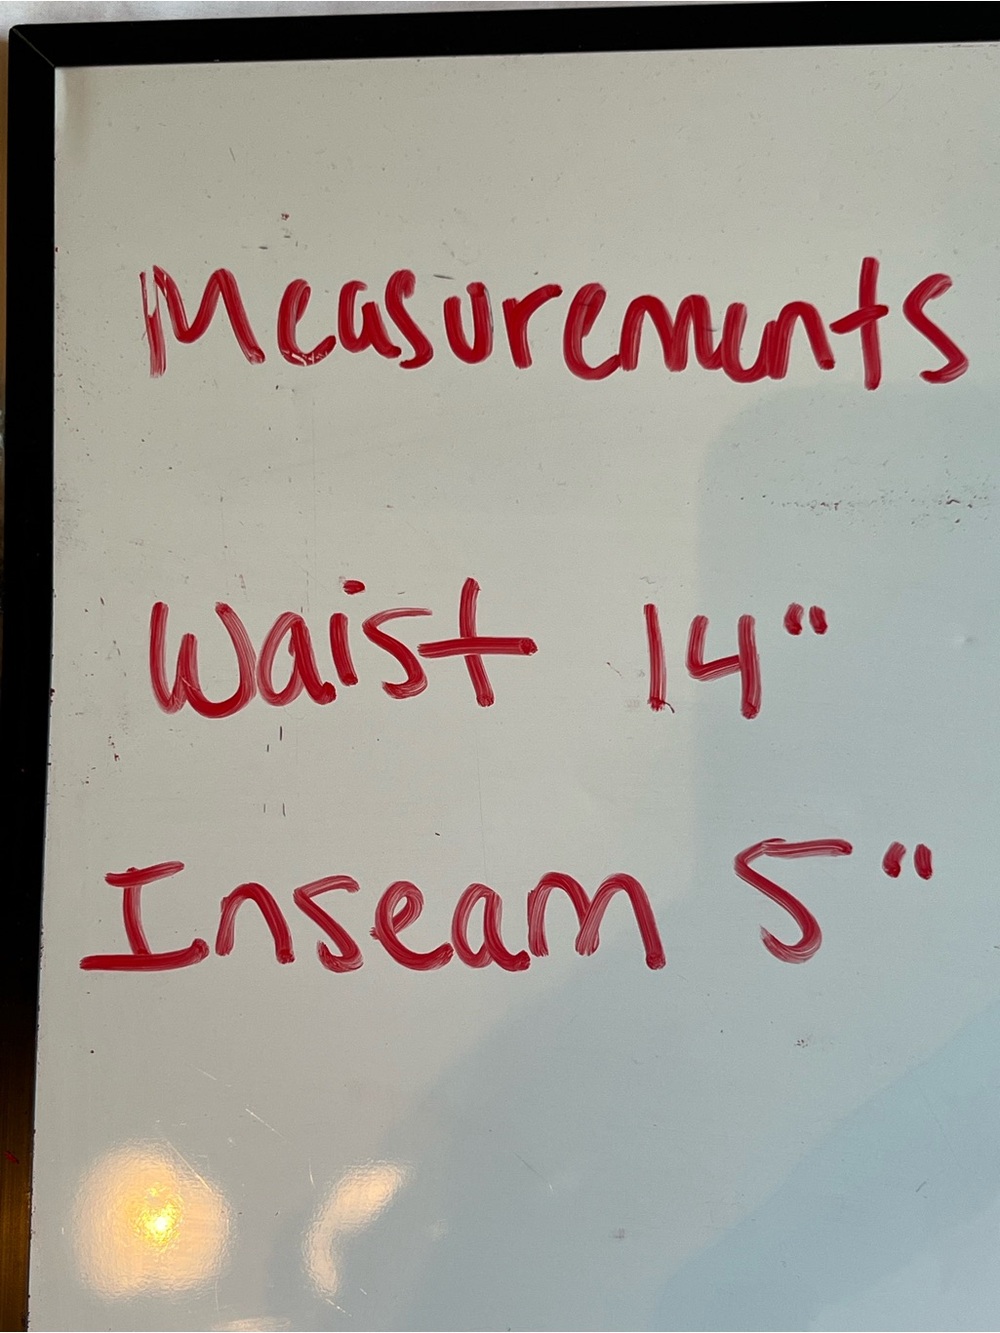 Measurements
Waist 14"
Inseam 5"